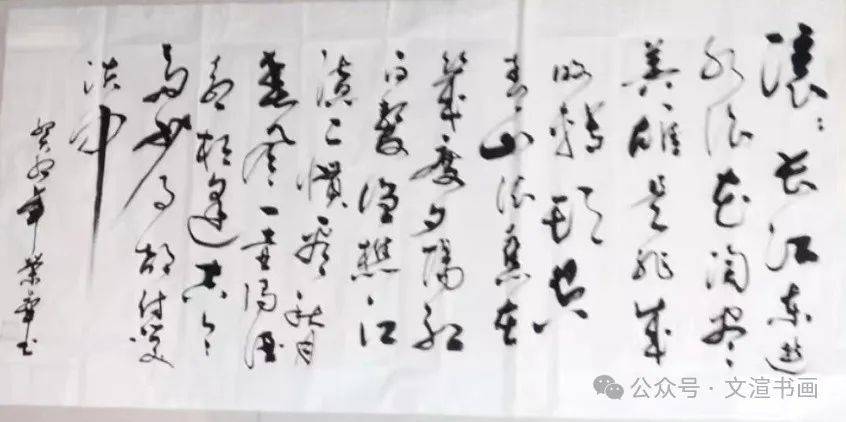 滚滚长江东逝
水浪花淘尽
英雄是非成
败转头空
青山依旧在
几度夕阳红
白发渔樵江
渚上惯看秋月
春风一壶浊酒
喜相逢古今
多少事都付笑
谈中
癸卯年荣书
公众号·文渲书画